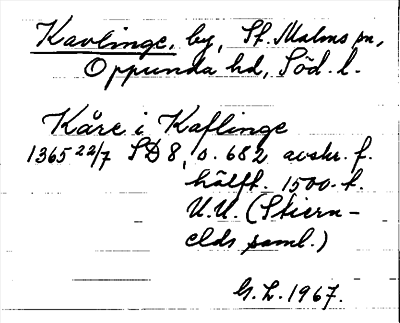 Kavlinge, by, St. Malms sn,
Oppunda hd, Söd. l.
Kåre i Kaflinge
1365 22/7 SD 8, s. 682 avskr. f.
hälft. 1500-t.
U.U. (Stiern-
elds saml.)
G.L. 1967.